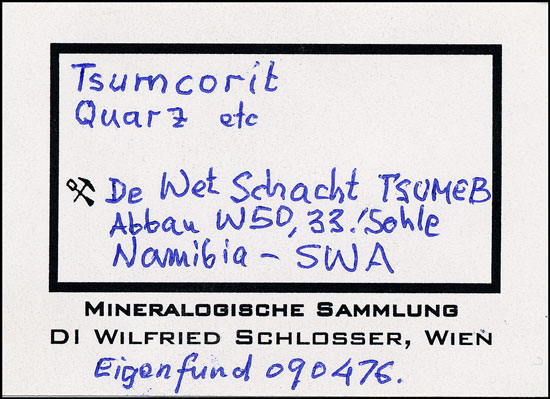 Tsumcorit
Quarz etc
De Wet Schacht TSUMEB
Abbau W50, 33. Sohle
Namibia - SWA
MINERALOGISCHE SAMMLUNG
DI WILFRIED SCHLOSSER, WIEN
Eigenfund 090476.